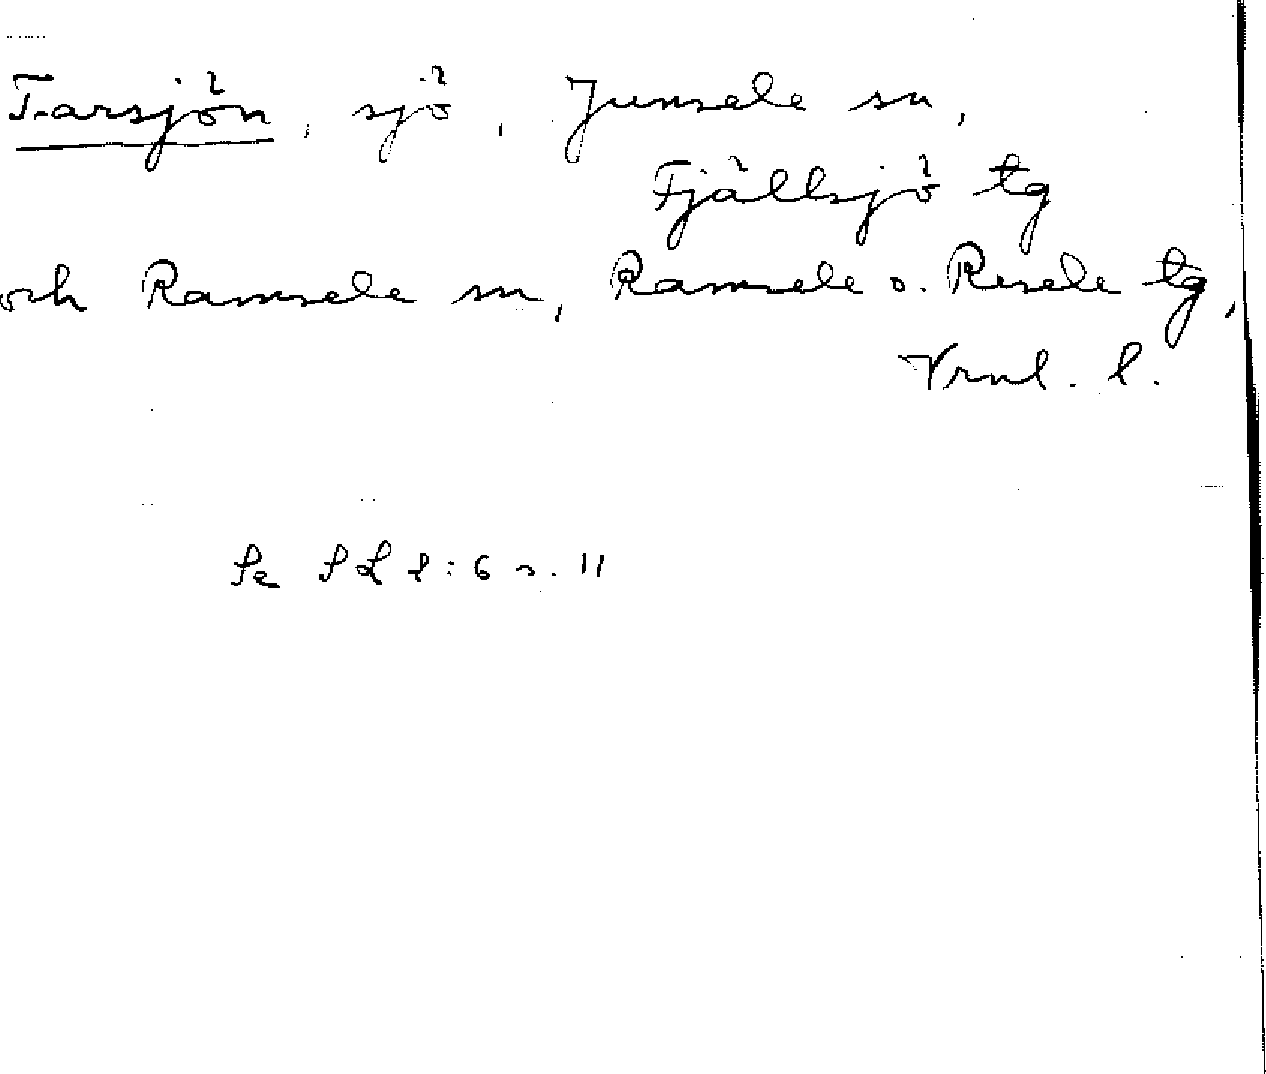 Tarsjön, sjö, Junsele sn,
Fjällsjö tg
och Ramsele sn, Ramsele o. Resele tg,
Vrnl. l.
Se SL 1:6 s. 11